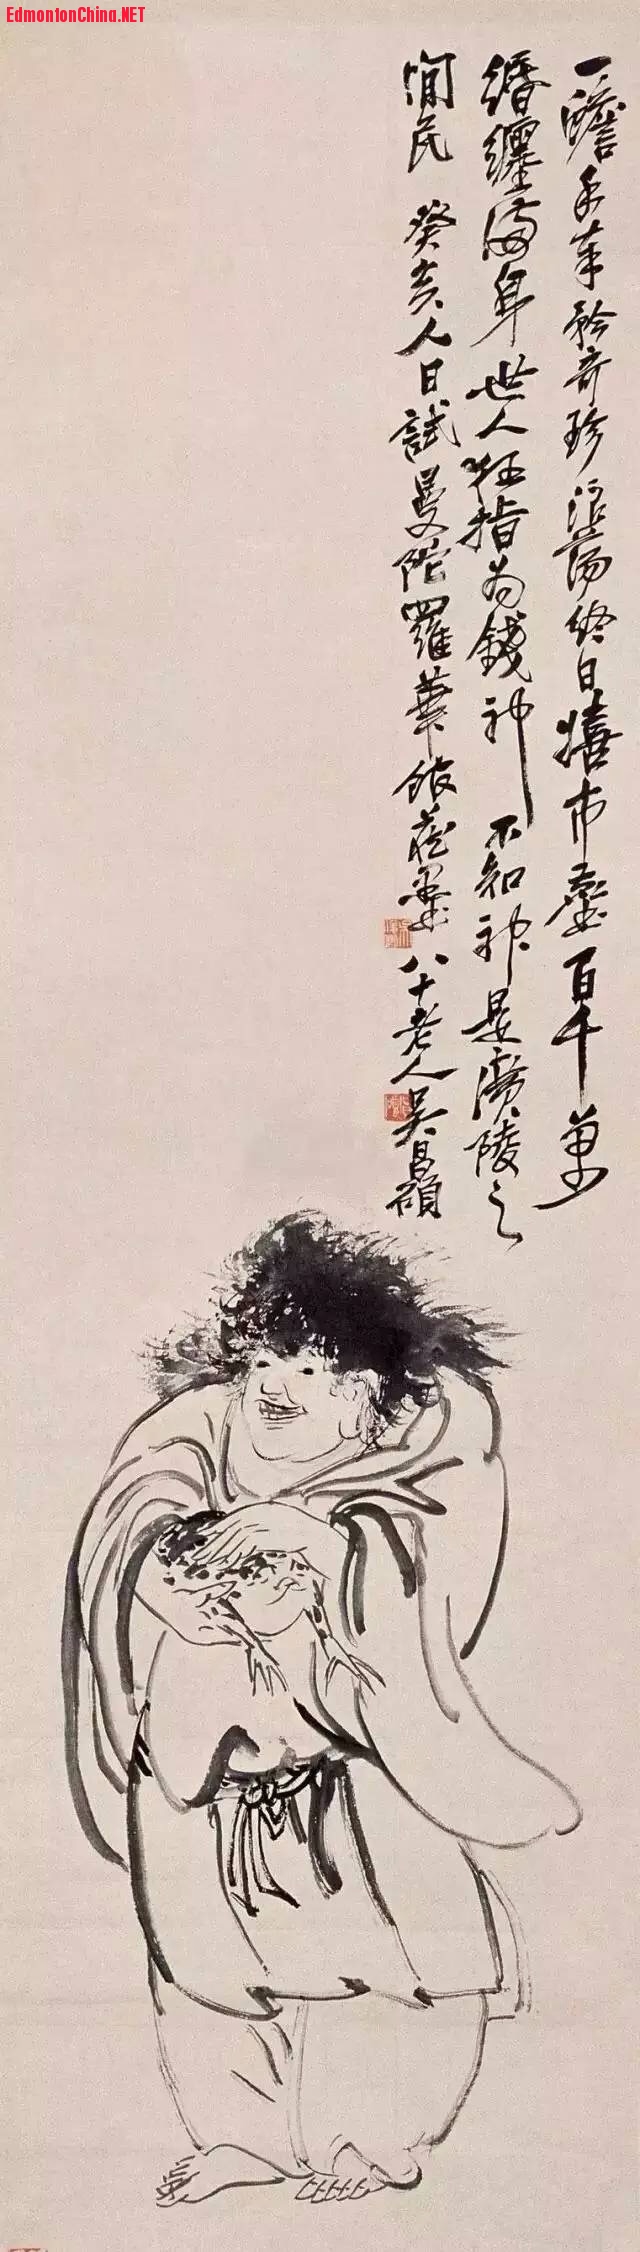 EdmontonChina.NET
一蟾手奉矜奇珍浪蕩終日嬉市廛百千萬
緡纏滿身世人狂指為錢神不知神是廣陵之
閒民 癸亥人日試曼陀羅華館藏墨 八十老人吳昌碩